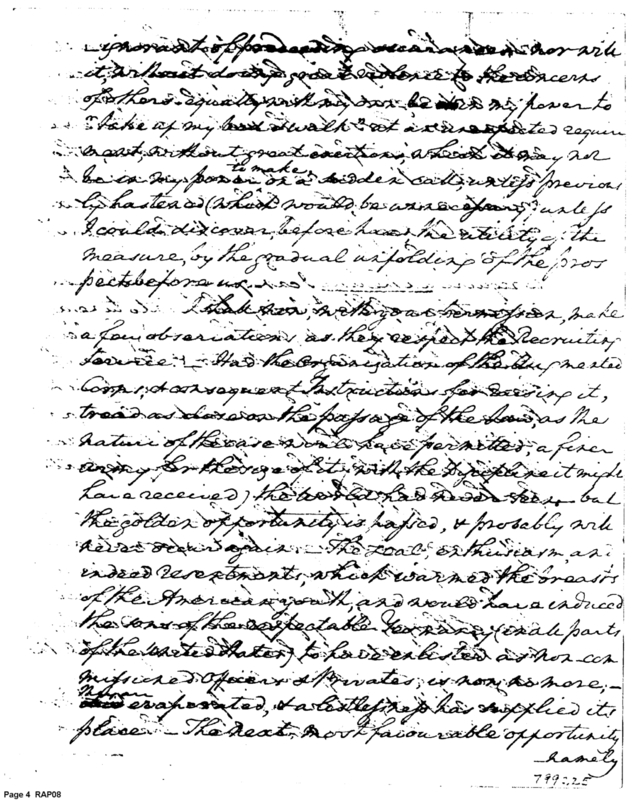 ignorant of preceding occurrences nor will
it, without doing great violence to the concerns
of others equally with my own be in my power to
"take up my bed & walk" at an unexpected require
ment, without great exertions, which it may not
be in my power to make on a sudden call, unless previous
ly hastened (which would be unnecessary) unless
I could discover before hand the utility of the
measure, by the gradual unfolding of the pros
pects before us.
I shall now, with your permission, make
a few observations as they respect the Recruiting
Service. — Had the Organization of the Augmented
Corps, & consequent Instructions for raising it,
tread as close on the passage of the Law, as the
nature of the case would have permitted, a finer
army for the size of it (with the Discipline it might
have received) the world had never seen but
the golden opportunity is passed, & probably will
never occur again. The zeal, enthusiasm, and
indeed resentments, which warmed the breasts
of the American youth, and would have induced
the sons of the respectable Yeomanry (in all parts
of the United States) to have enlisted as non-com
missioned Officers & Privates, is now no more; —
evaporated, & a listlessness has supplied its
place. — The next, most favourable opportunity
namely
799:25
Page 4 RAP08